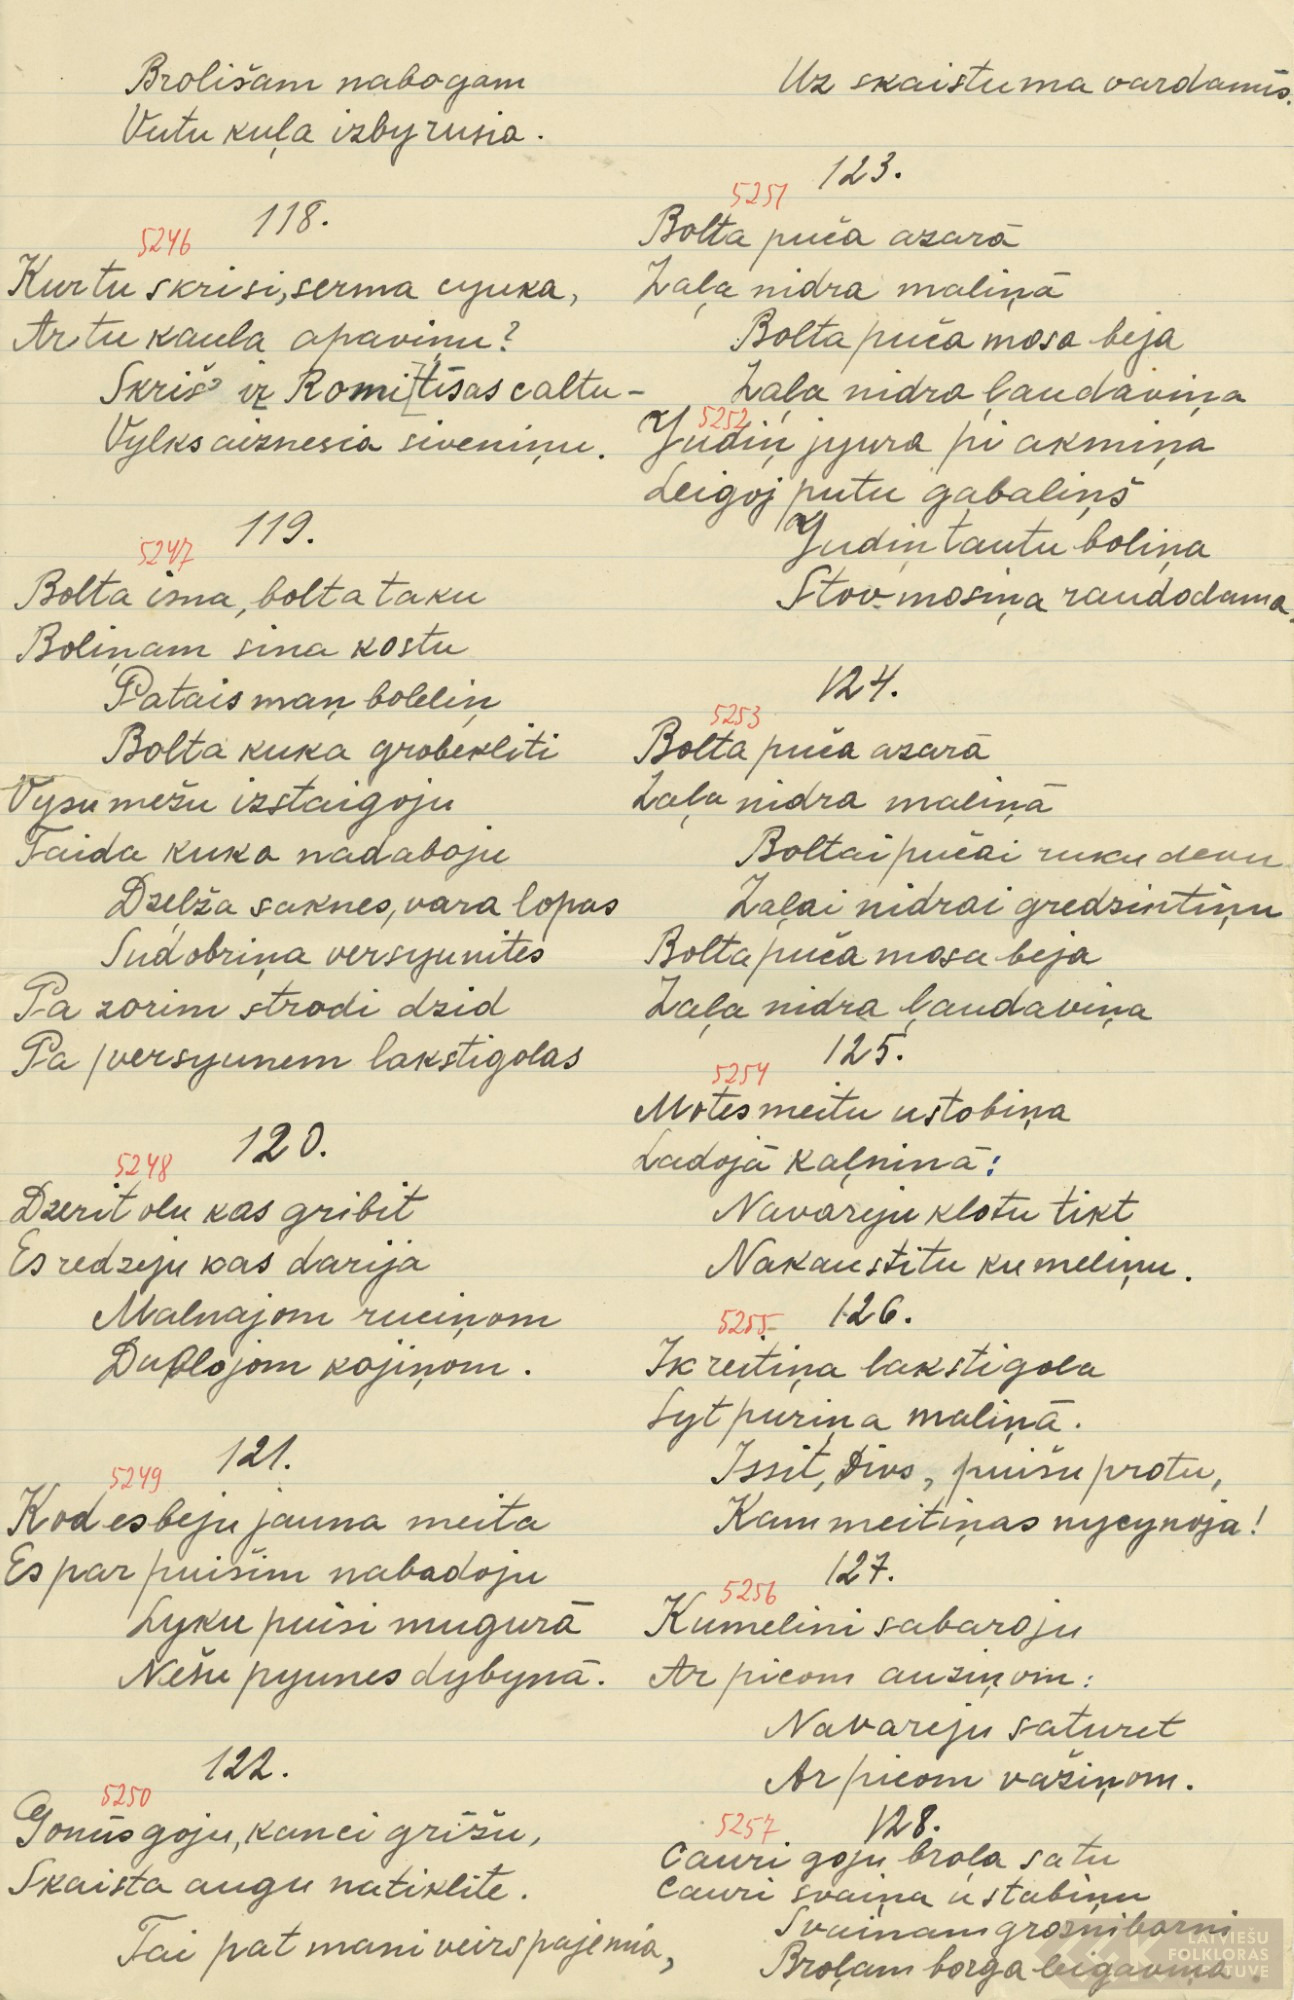 Brolišam nabogam
Vutu kuļa izbyrusia.
118.
5246
Kur tu skrisi, serma cyuka,
Ar tu kaula apaviņu?
Skrišo iz Romi[tisas caltu-
Vylks aiznesia siveniņu.
119.
5247
Bolta isna, bolta taku
Boliņam sina kostu
Patais maņ boleliņ
Bolta kuka grobekliti
Vysu mežu izstaigoju
Taida kuka nadaboju
Dzeļža saknes, vara lopas
Sudobriņa versyunites
Pa zorim strodi dzid
Pa versyunem lakstigolas
120.
5248
Dzerit olu kas gribit
Es redzeju kas darija
Malnajom ruciņom
Dublojom kojiņom.
121.
5249
Kod es beju jauna meita
Es par puišim nabadoju
Lyku puisi mugurā
Nešu pyunes dybynā.
122.
5250
Gonūs goju, kanci grīžu,
Skaista augu natiklite.
Tai pat mani veirs pajemia,
Uz skaistuma vardamūs.
123.
5251
Bolta puča azarā
Zaļa nidra maliņā
Bolta puča mosa beja
Zaļa nidra ļaudaviņa
5252
Yudiņ jyura pi akmiņa
Leigoj putu gabaliņš
Yudiņ tautu boliņa
Stov mosiņa raudodama.
124.
5253
Bolta puča azarā
Zaļa nidra maliņā
Boltai pučai ruku devu
Zaļai nidrai gredzintiņu
Bolta puča mosa beja
Zaļa nidra ļaudaviņa
125.
5254
Motes meitu ustobiņa
Ladojā kaļninā:
Navareju klotu tikt
Nakaustitu kumeliņu.
126.
5255
Ik reitiņa lakstigola
Syt puriņa maliņā.
Issit, Divs, puišu protu,
Kam meitiņas nycynoja!
127.
5256
Kumelini sabaroju
Ar picom auziņom:
Navareju saturet
Ar picom važiņom.
5257
128.
Cauri goju broļa satu
Cauri svaiņa ustabiņu
Svaiņam grozņi barni
Broļam borga leigaviņa.
LATVIEŠU
FOLKLORAS
KRĀTUVE